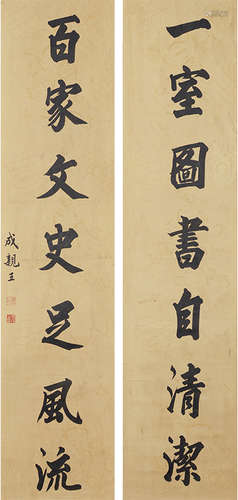 一室圖書自清潔
百家文史足風流
成親王